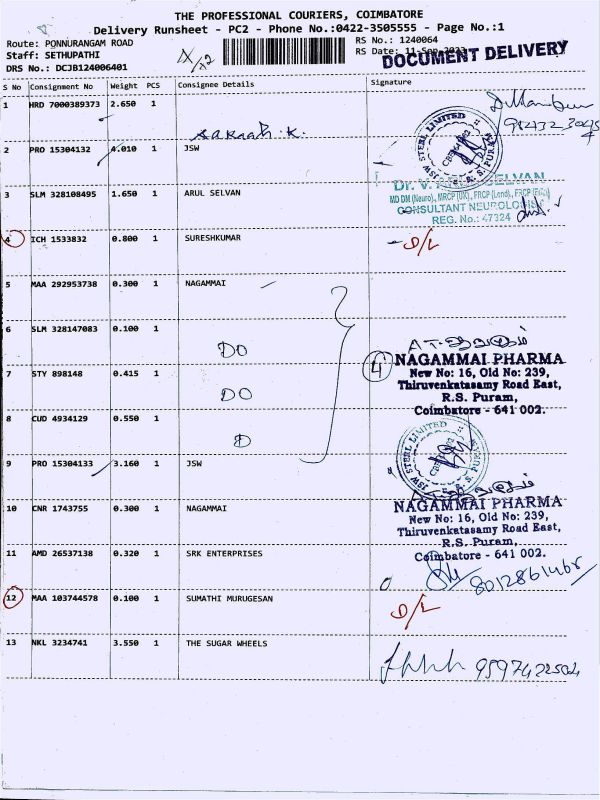 THE PROFESSIONAL COURIERS, COIMBATORE
Delivery Runsheet - PC2 - Phone No.:0422-3505555 - Page No.:1
Route: PONNURANGAM ROAD
RS No.: 1240064
Staff: SETHUPATHI
RS Date: 11-Sep-2023
DRS No.: DCJB124006401
DOCUMENT DELIVERY
S No Consignment No Weight PCS Consignee Details Signature
1 HRD 7000389373 2.650 1
2 PRO 15304132 4.010 1 JSW
JSW STEEL LIMITED
3 SLM 328108495 1.650 1 ARUL SELVAN
MD DM (Neuro), MRCP (UK), FRCP (Lond), FRCP (Edin)
CONSULTANT NEUROLOGIST
REG. No.: 47324
4 ICH 1533832 0.800 1 SURESHKUMAR
D/L
5 MAA 292953738 0.300 1 NAGAMMAI
6 SLM 328147083 0.100 1
DO
4
NAGAMMAI PHARMA
New No: 16, Old No: 239,
Thiruvenkatasamy Road East,
R.S. Puram,
Coimbatore - 641 002.
7 STY 898148 0.415 1
DO
8 CUD 4934129 0.550 1
D
JSW STEEL LIMITED
9 PRO 15304133 3.160 1 JSW
10 CNR 1743755 0.300 1 NAGAMMAI
NAGAMMAI PHARMA
New No: 16, Old No: 239,
Thiruvenkatasamy Road East,
R.S. Puram,
Coimbatore - 641 002.
11 AMD 26537138 0.320 1 SRK ENTERPRISES
8012861468
12 MAA 103744578 0.100 1 SUMATHI MURUGESAN
D/L
13 NKL 3234741 3.550 1 THE SUGAR WHEELS
9597422504